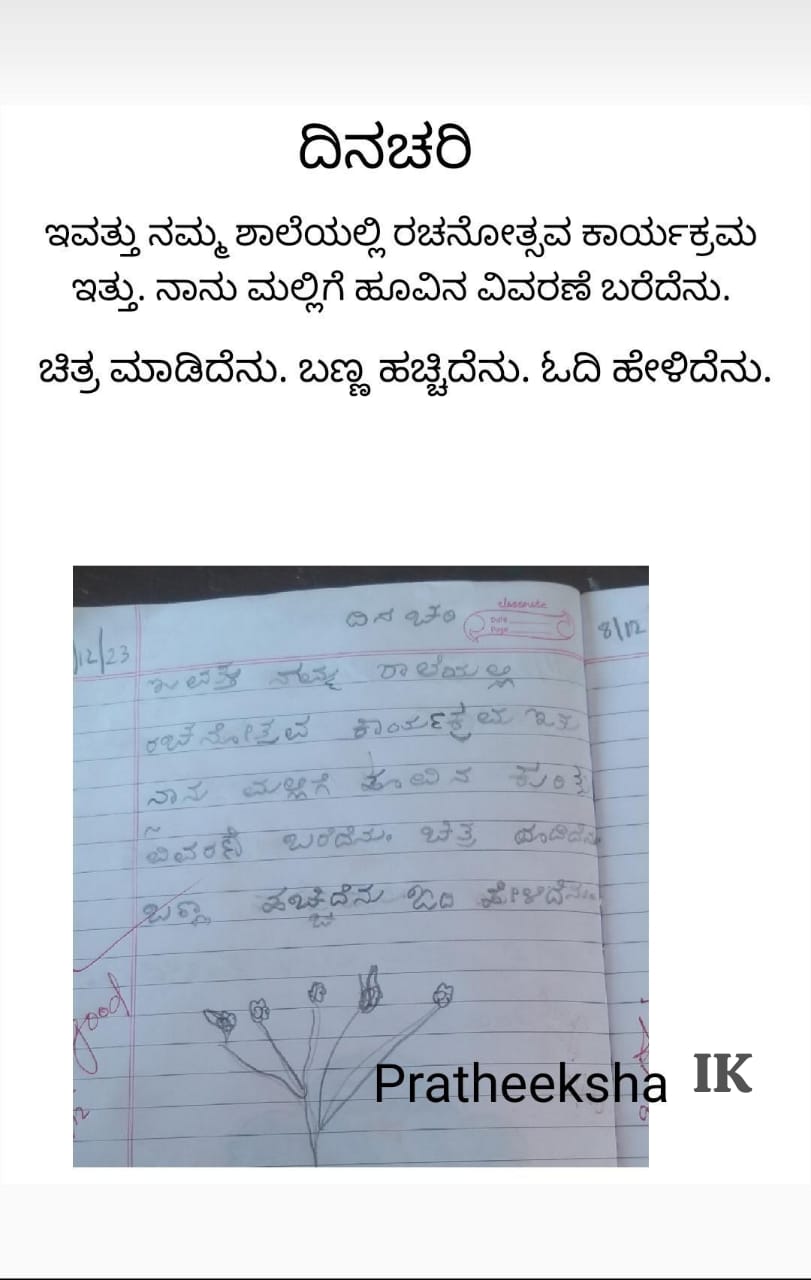 ದಿನಚರಿ
ಇವತ್ತು ನಮ್ಮ ಶಾಲೆಯಲ್ಲಿ ರಚನೋತ್ಸವ ಕಾರ್ಯಕ್ರಮ
ಇತ್ತು. ನಾನು ಮಲ್ಲಿಗೆ ಹೂವಿನ ವಿವರಣೆ ಬರೆದೆನು.
ಚಿತ್ರ ಮಾಡಿದೆನು. ಬಣ್ಣ ಹಚ್ಚಿದೆನು. ಓದಿ ಹೇಳಿದೆನು.
ದಿನ ಚರಿ
classmate
Date
Page
8/12
/12/23
ಇವತ್ತ ನಮ್ಮ ಶಾಲೆಯಲ್ಲಿ
ರಚನೋತ್ಸವ ಕಾರ್ಯಕ್ರಮ ಇತ್ತು
ನಾನು ಮಲ್ಲಿಗೆ ಹೂವಿನ
ವಿವರಣೆ ಬರೆದೆನು. ಚಿತ್ರ ಮಾಡಿದೆನು
ಬಣ್ಣ ಹಚ್ಚಿದೆನು ಓದಿ ಹೇಳಿದೆನು.
good
Pratheeksha IK